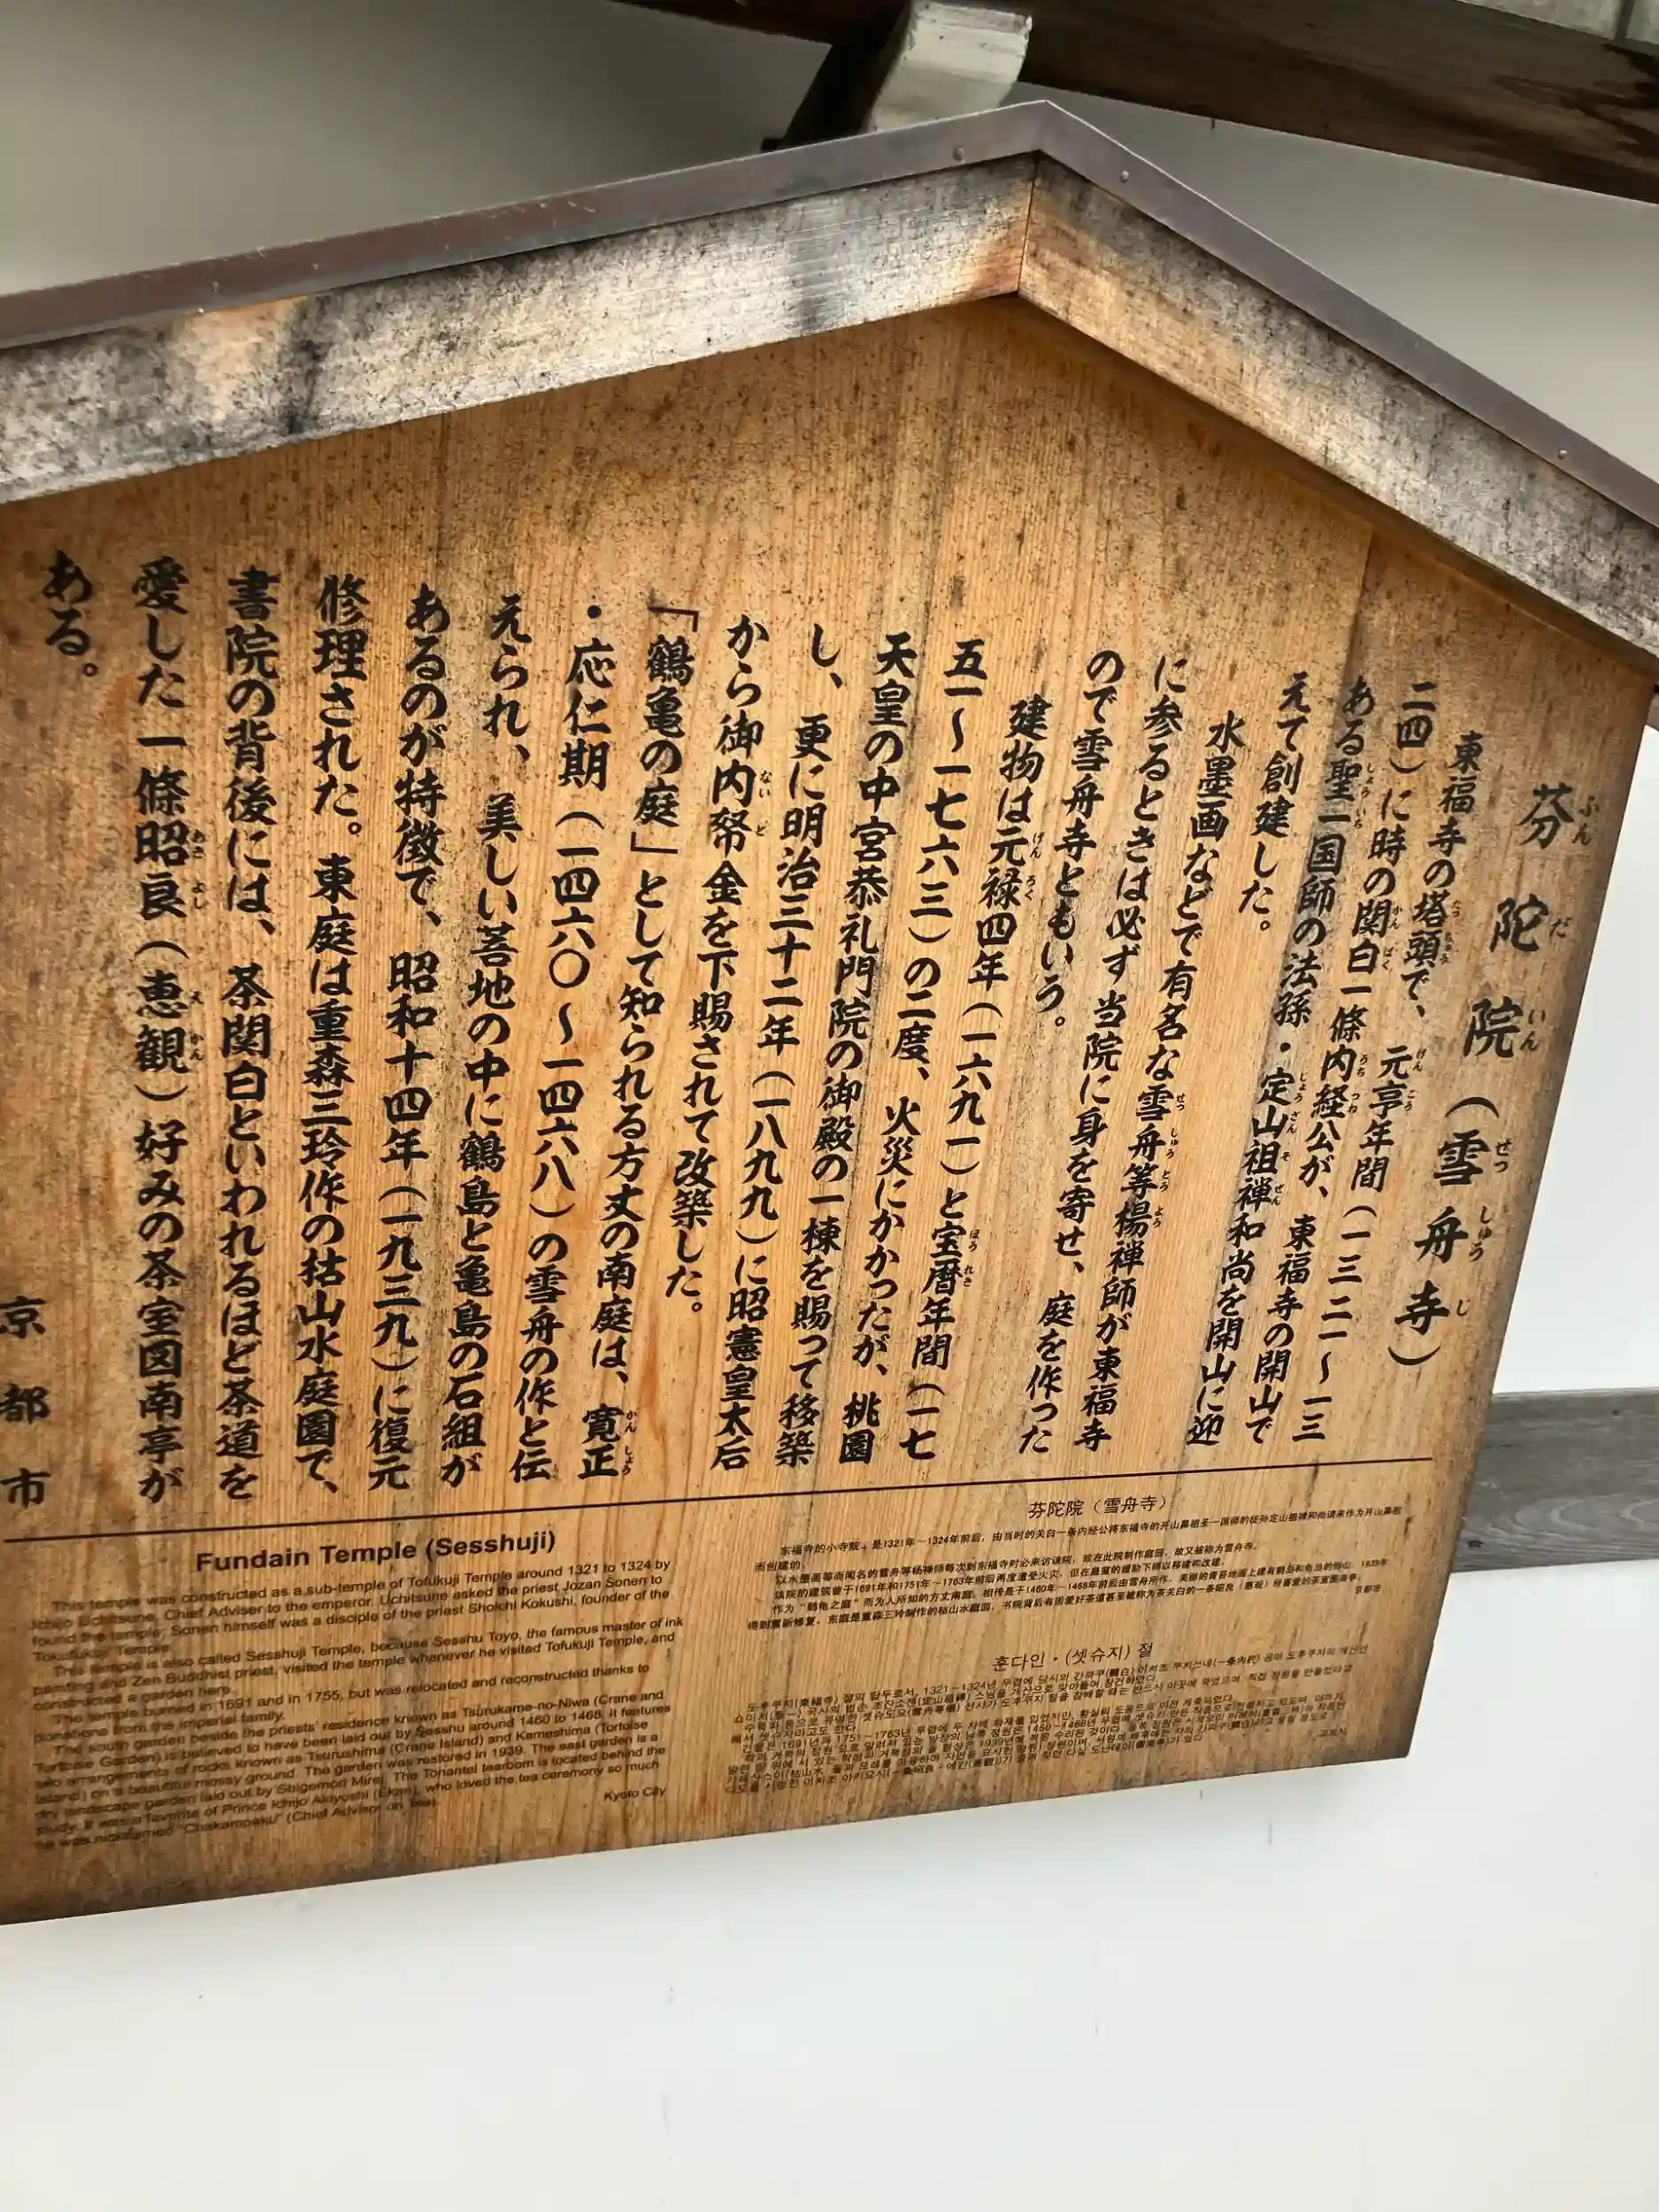 芬陀院（雪舟寺）
東福寺の塔頭で、元亨年間（一三二一〜一三
二四）に時の関白一條内経公が、東福寺の開山で
ある聖一国師の法孫・定山祖禅和尚を開山に迎
えて創建した。
水墨画などで有名な雪舟等楊禅師が東福寺
に参るときは必ず当院に身を寄せ、庭を作った
ので雪舟寺ともいう。
建物は元禄四年（一六九一）と宝暦年間（一七
五一〜一七六三）の二度、火災にかかったが、桃園
天皇の中宮恭礼門院の御殿の一棟を賜って移築
し、更に明治三十二年（一八九九）に昭憲皇太后
から御内帑金を下賜されて改築した。
「鶴亀の庭」として知られる方丈の南庭は、寛正
・応仁期（一四六〇〜一四六八）の雪舟の作と伝
えられ、美しい苔地の中に鶴島と亀島の石組が
あるのが特徴で、昭和十四年（一九三九）に復元
修理された。東庭は重森三玲作の枯山水庭園で、
書院の背後には、茶関白といわれるほど茶道を
愛した一條昭良（恵観）好みの茶室図南亭が
ある。
京都市
Fundain Temple (Sesshuji)
This temple was constructed as a sub-temple of Tofukuji Temple around 1321 to 1324 by
Ichijo Uchitsune, Chief Adviser to the emperor. Uchitsune asked the priest Jozan Sonen to
found the temple; Sonen himself was a disciple of the priest Shoichi Kokushi, founder of the
Temple.
This temple is also called Sesshuji Temple, because Sesshu Toyo, the famous master of ink
painting and Zen Buddhist priest, visited the temple whenever he visited Tofukuji Temple, and
constructed a garden here.
The temple burned in 1691 and in 1755, but was relocated and reconstructed thanks to
donations from the imperial family.
The south garden beside the priests' residence known as Tsurukame-no-Niwa (Crane and
Tortoise Garden) is believed to have been laid out by Sesshu around 1460 to 1468. It features
two arrangements of rocks known as Tsurushima (Crane Island) and Kameshima (Tortoise
Island) on a beautiful mossy ground. The garden was restored in 1939. The east garden is a
dry landscape garden laid out by Shigemori Mirei. The Tonantei tearoom is located behind the
study. It was a favorite of Prince Ichijo Akiyoshi (Ekan), who loved the tea ceremony so much
he was nicknamed "Chakampaku" (Chief Advisor on Tea).
Kyoto City
芬陀院（雪舟寺）
东福寺的小寺院。是1321年～1324年前后，由当时的关白一条内经公将东福寺的开山鼻祖圣一国师的徒孙定山祖禅和尚请来作为开山鼻祖
而创建的。
以水墨画等而闻名的雪舟等杨禅师每次到东福寺时必来访该院，故在此院制作庭园，故又被称为雪舟寺。
该院的建筑曾于1691年和1751年～1763年前后两度遭受火灾，但在皇室的援助下得以移建和改建。
作为“鹤龟之庭”而为人所知的方丈南庭，相传是于1460年～1468年前后由雪舟所作，美丽的青苔地面上建有鹤岛和龟岛的假山，1939年
得到重新修复。东庭是重森三玲制作的枯山水庭园，书院背后有因爱好茶道甚至被称为茶关白的一条昭良（惠观）所喜爱的茶室图南亭。
京都市
훈다인・(셋슈지) 절